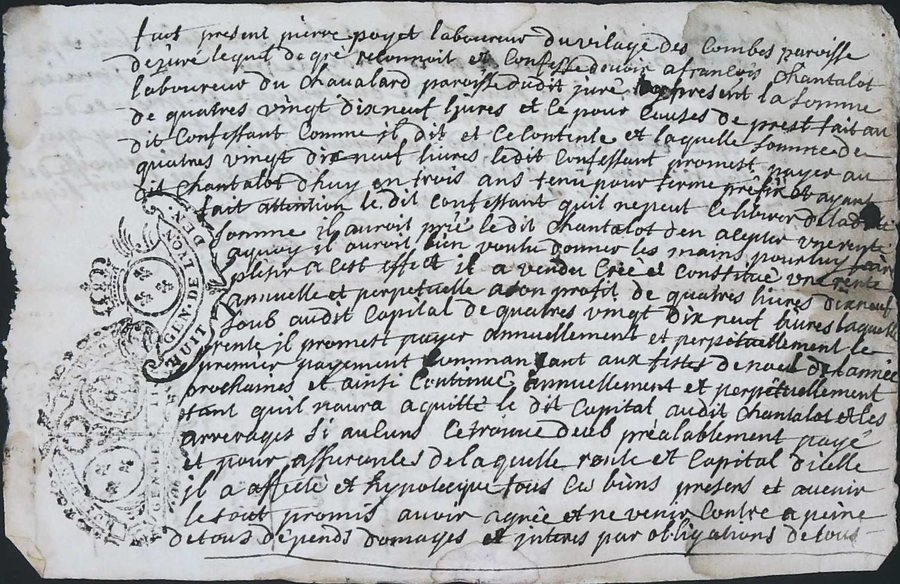 fut present pierre poyet laboureur du vilage des Combes paroisse
de juré lequel de gré reconnoit et Confesse devoir a françois Chantalot
laboureur du Chavalard paroisse dudit juré present la somme
de quatres vingt dix neuf livres et le pour Causes de prest fait au
dit Confessant Comme il dit et Ce Contente et laquelle somme de
quatres vingt dix neuf livres ledit Confessant promest payer au
dit Chantalot d'huy en trois ans tenû pour terme prefix et ayant
fait attention le dit Confessant quil ne peut Ce liberer de la dite
somme il auroit prié le dit Chantalot den acepter vne rente
aquoy il auroit bien voulu donner les mains pour luy faire
plesir a Cest effect il a vendu Créé et Constitué vne rente
annuelle et perpetuelle a son profit de quatres livres dix neuf
soub audit Capital de quatres vingt dix neuf livres laquelle
rente il promest payer annuellement et perpetuellement le
premier payement Commansant aux festes de noel de lannée
prochaines et ainsi Continué annuellement et perpétuellement
tant quil naura aquitté le dit Capital audit Chantalot et les
arrerages si aucuns Ce trouve deub préalablement payé
et pour assurances de laquelle rente et Capital dicelle
il a affecté et hypotecque tous Ces biens presens et avenir
le tout promis avoir agrée et ne venir Contre a peine
de tous dépends domages et interes par obligations de tous
GEN. DE LYON
HUIT DEN